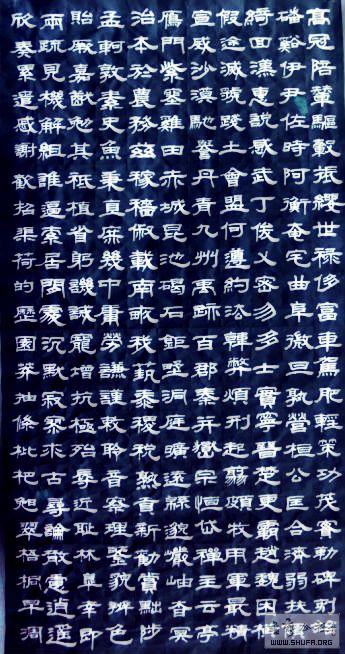 高冠陪輦驅轂振纓世祿侈富車駕肥輕策功茂實勒碑刻銘
磻谿伊尹佐時阿衡奄宅曲阜微旦孰營桓公匡合濟弱扶傾
綺回漢惠說感武丁俊乂密勿多士寔寧晉楚更霸趙魏困橫
假途滅虢踐土會盟何遵約法韓弊煩刑起翦頗牧用軍最精
宣威沙漠馳譽丹青九州禹跡百郡秦并嶽宗恒岱禪主云亭
鴈門紫塞雞田赤城昆池碣石鉅野洞庭曠遠綿邈巖岫杳冥
治本於農務茲稼穡俶載南畝我藝黍稷稅熟貢新勸賞黜陟
孟軻敦素史魚秉直庶幾中庸勞謙謹敕聆音察理鑒貌辨色
貽厥嘉猷勉其祗植省躬譏誡寵增抗極殆辱近恥林皋幸即
兩疏見機解組誰逼索居閑處沉默寂寥求古尋論散慮逍遙
欣奏累遣慼謝歡招渠荷的歷園莽抽條枇杷晚翠梧桐早凋